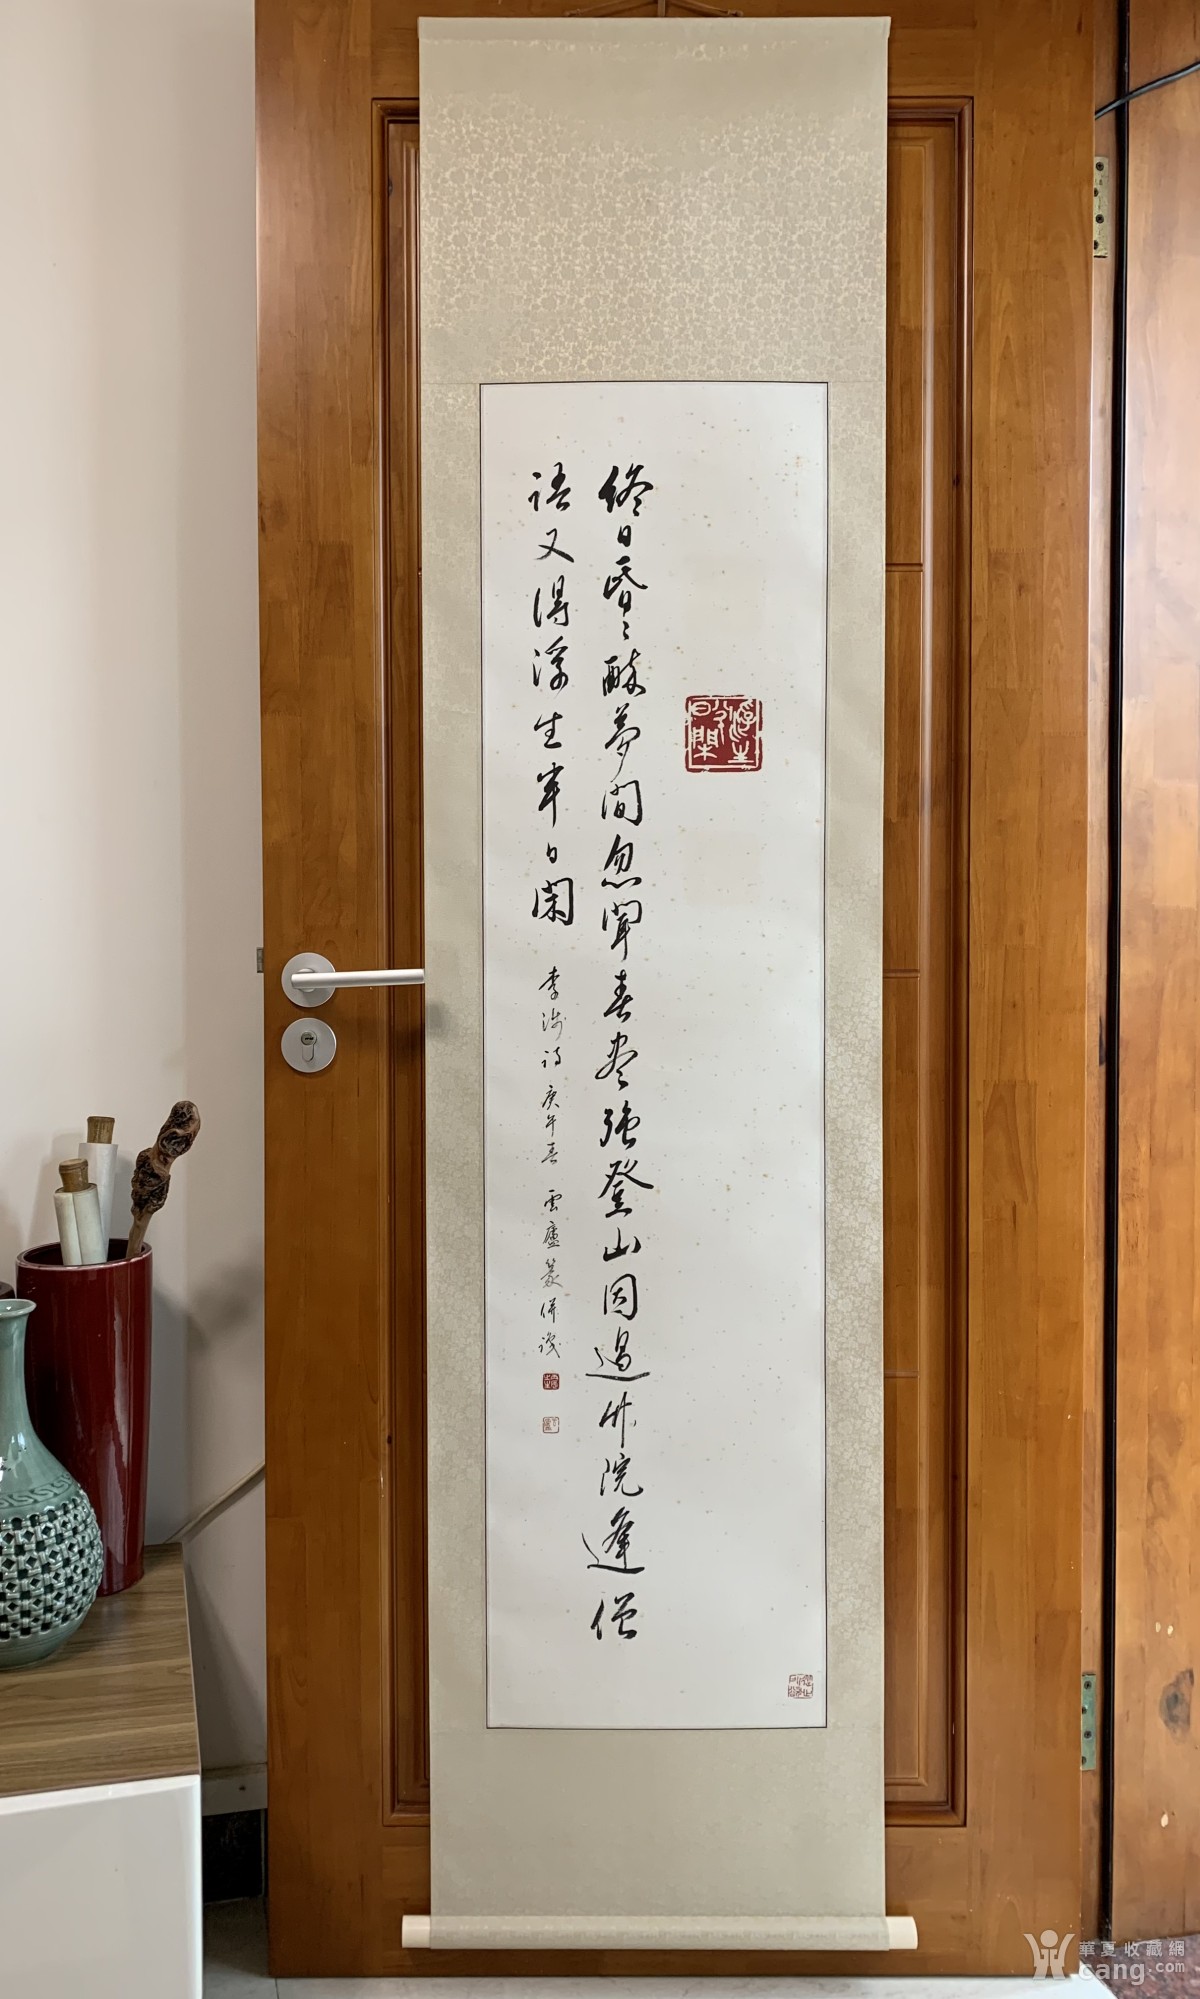 浮生半日閑
終日昏〻醉夢間忽聞春盡強登山因過竹院逢僧
語又得浮生半日閑
李涉詩 庚午春 雲廬篆併識
華夏收藏網
cang.com